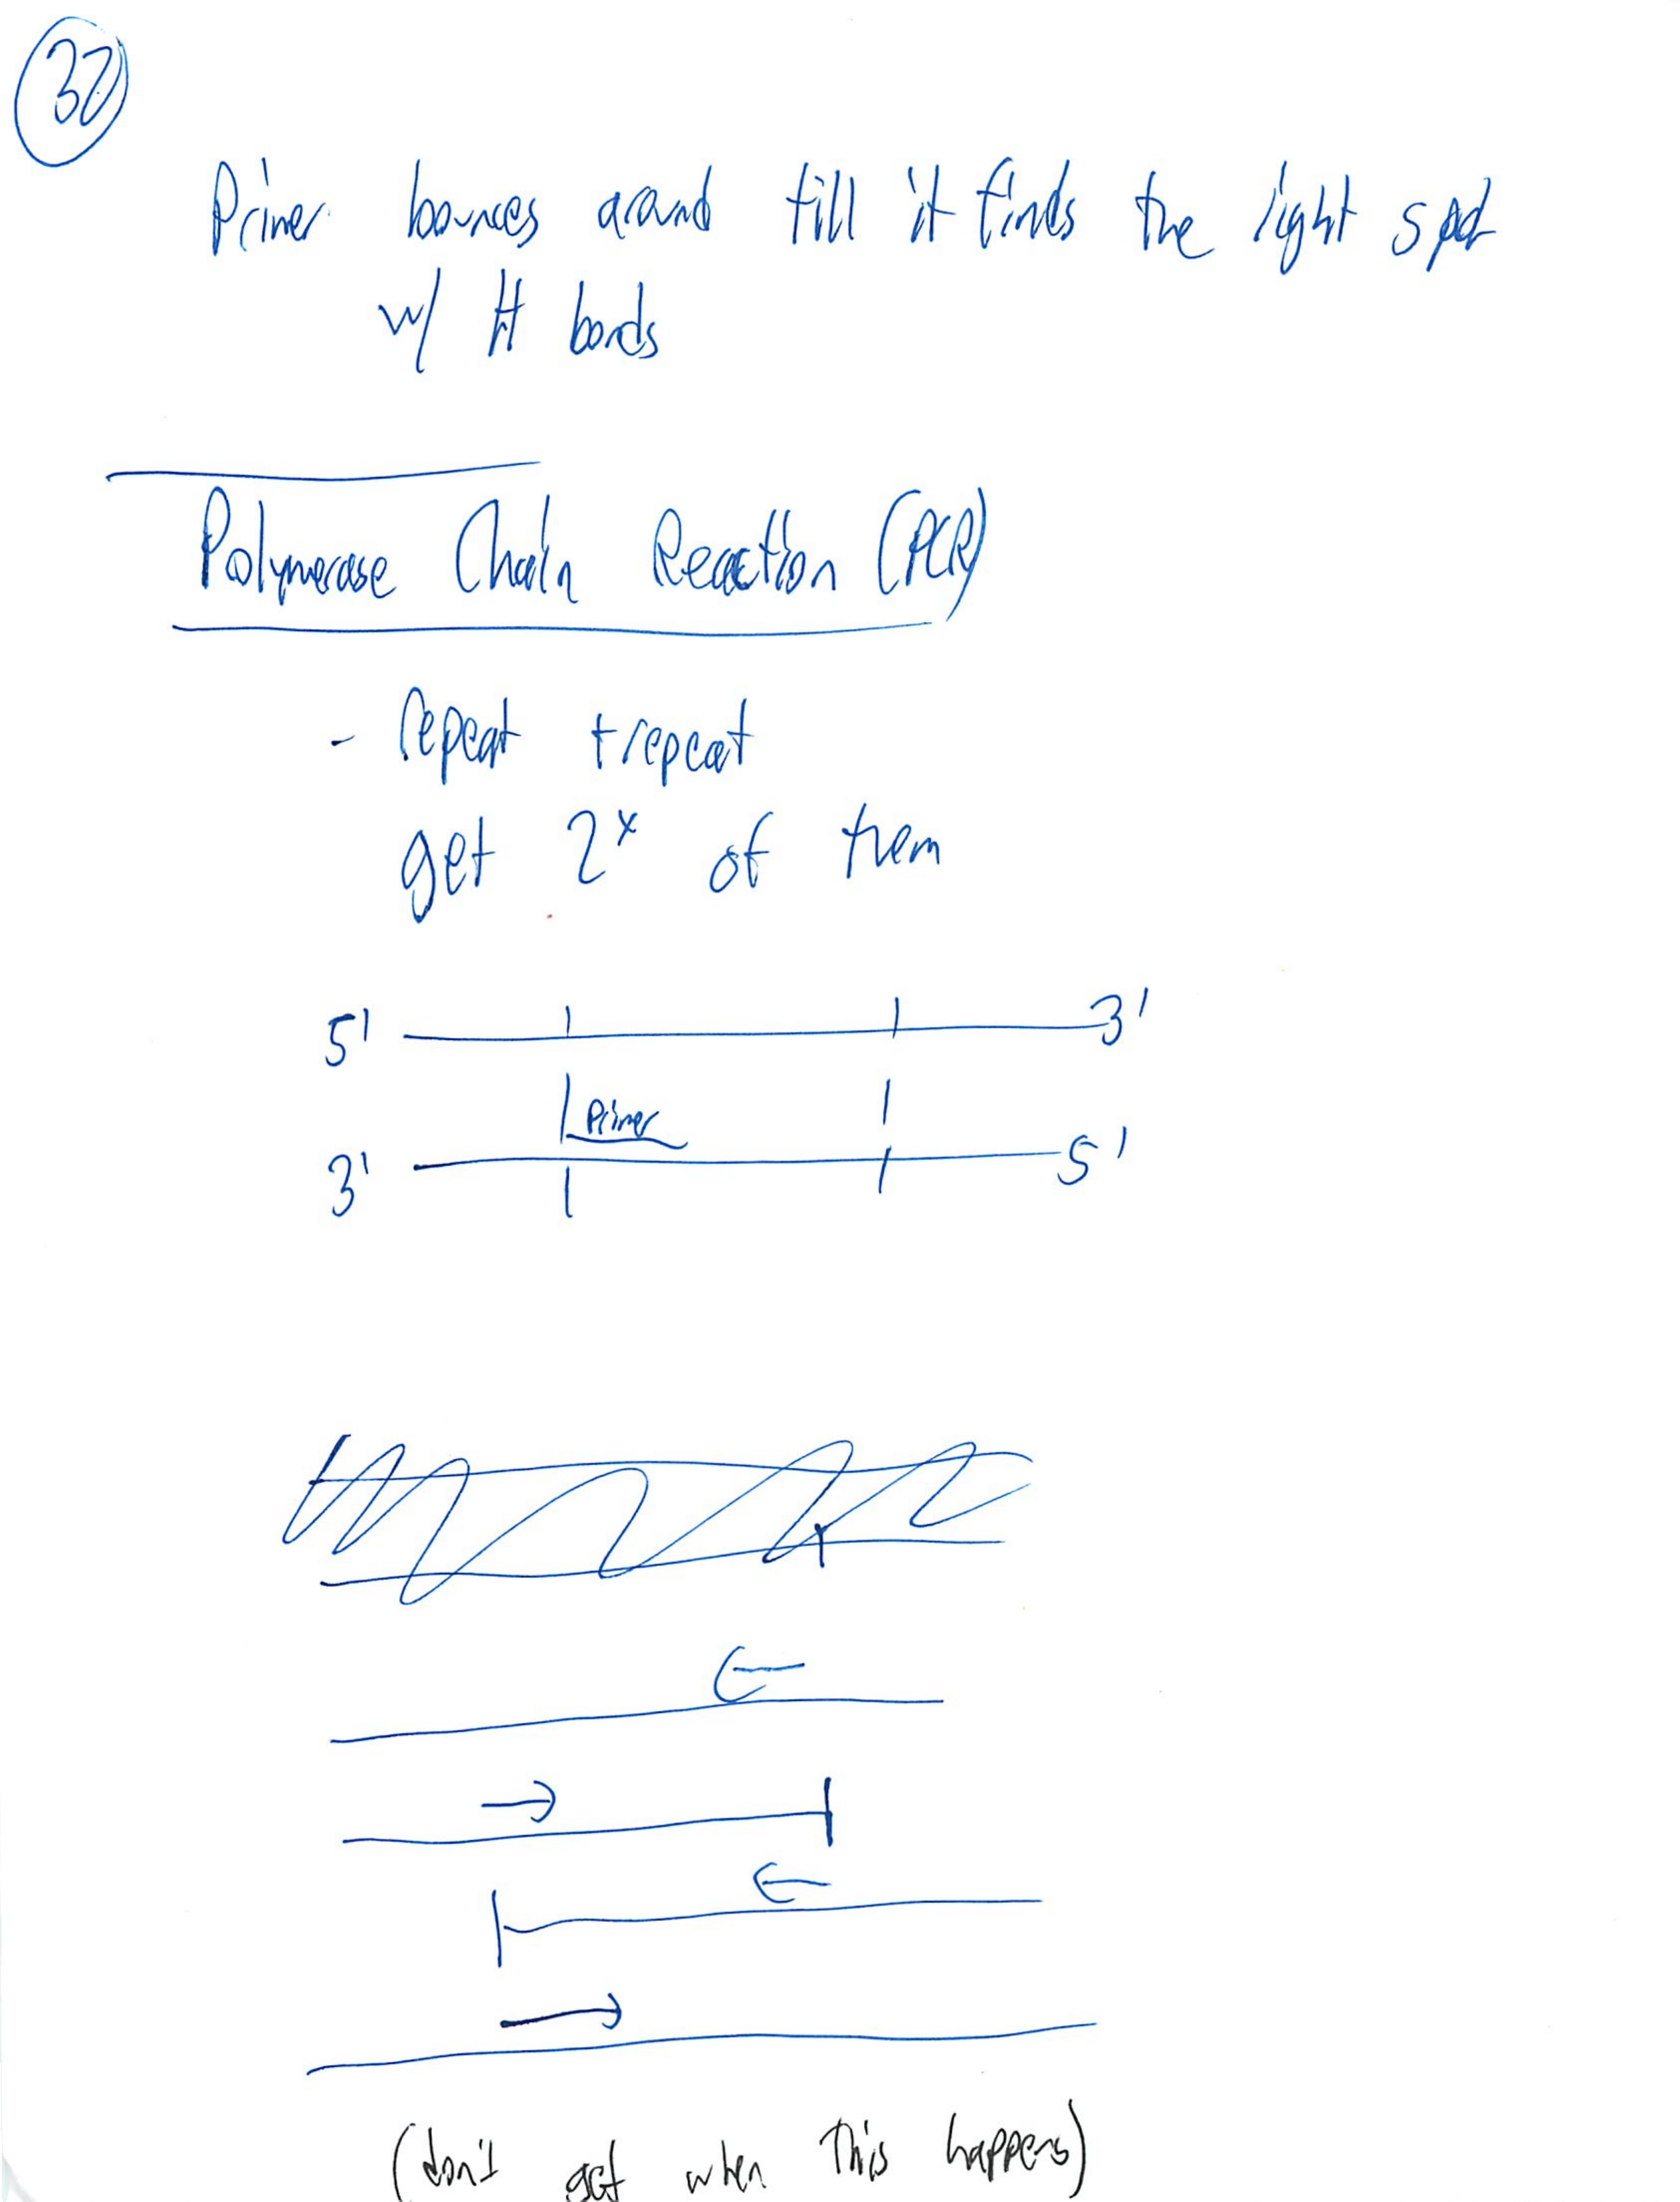 32
Primer bounces around till it finds the right spot
w/ H bonds
Polymerase Chain Reaction (PCR)
- repeat + repeat
get 2ˣ of them
5' 3'
Primer
3' 5'
(don't get when this happens)